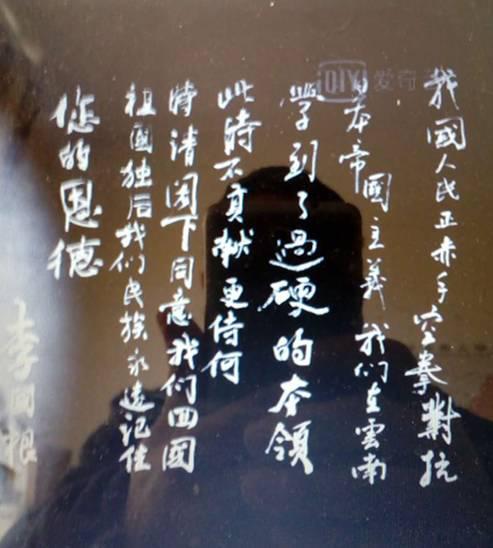 我國人民正赤手空拳對抗
日本帝國主義我们在雲南
學到了過硬的本領
此時不貢献更待何
時請阁下同意我们回國
祖國独后我们民族永遠记住
您的恩德
李
QIY 爱奇